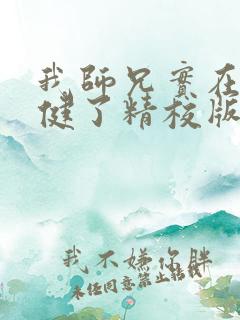 我師兄實在
健了精校版
我不嫌你胖
未经同意禁止转载